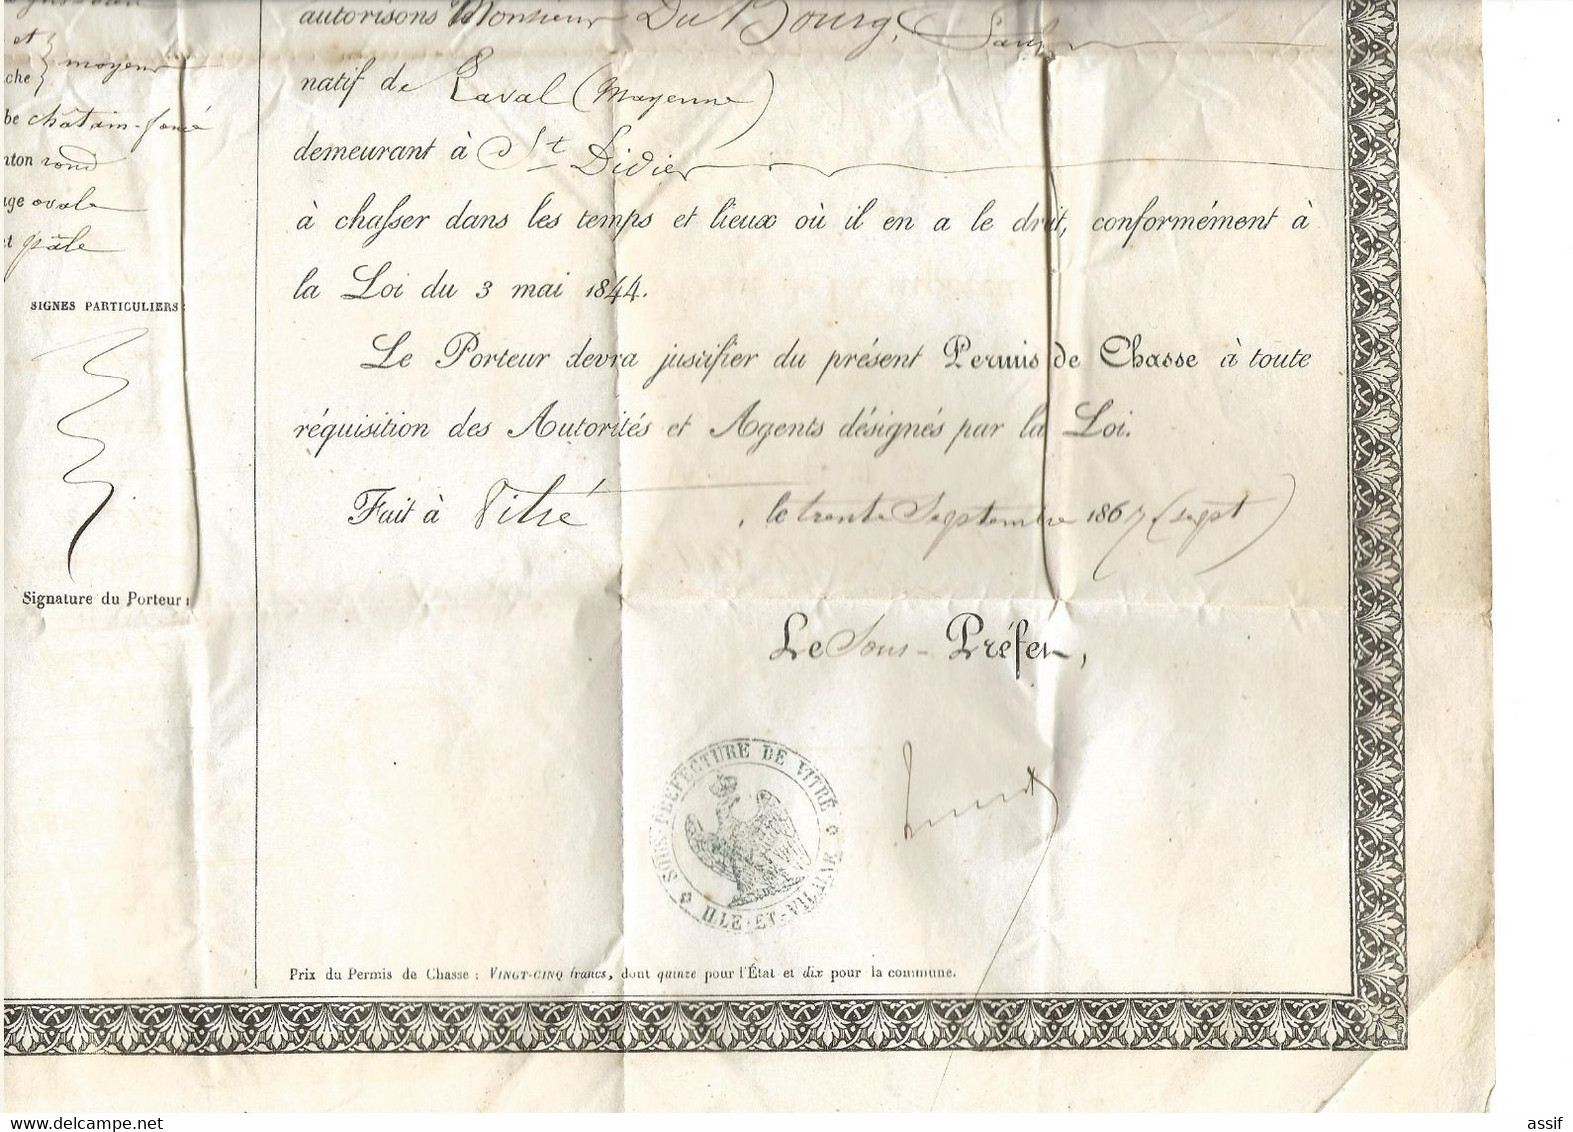 et
che } moyen
be châtain-foncé
nton rond
age ovale
t pâle
SIGNES PARTICULIERS:
Signature du Porteur:
autorisons Monsieur Du Bourg, Paul
natif de Laval (Mayenne)
demeurant à St Didier
à chasser dans les temps et lieux où il en a le droit, conformément à
la Loi du 3 mai 1844.
Le Porteur devra justifier du présent Permis de Chasse à toute
réquisition des Autorités et Agents désignés par la Loi.
Fait à Vitré, le trente Septembre 1867 (sept)
Le Sous-Préfet,
SOUS-PREFECTURE DE VITRÉ
ILLE-ET-VILAINE
Prix du Permis de Chasse : VINGT-CINQ francs, dont quinze pour l'État et dix pour la commune.
delcampe.net
assif